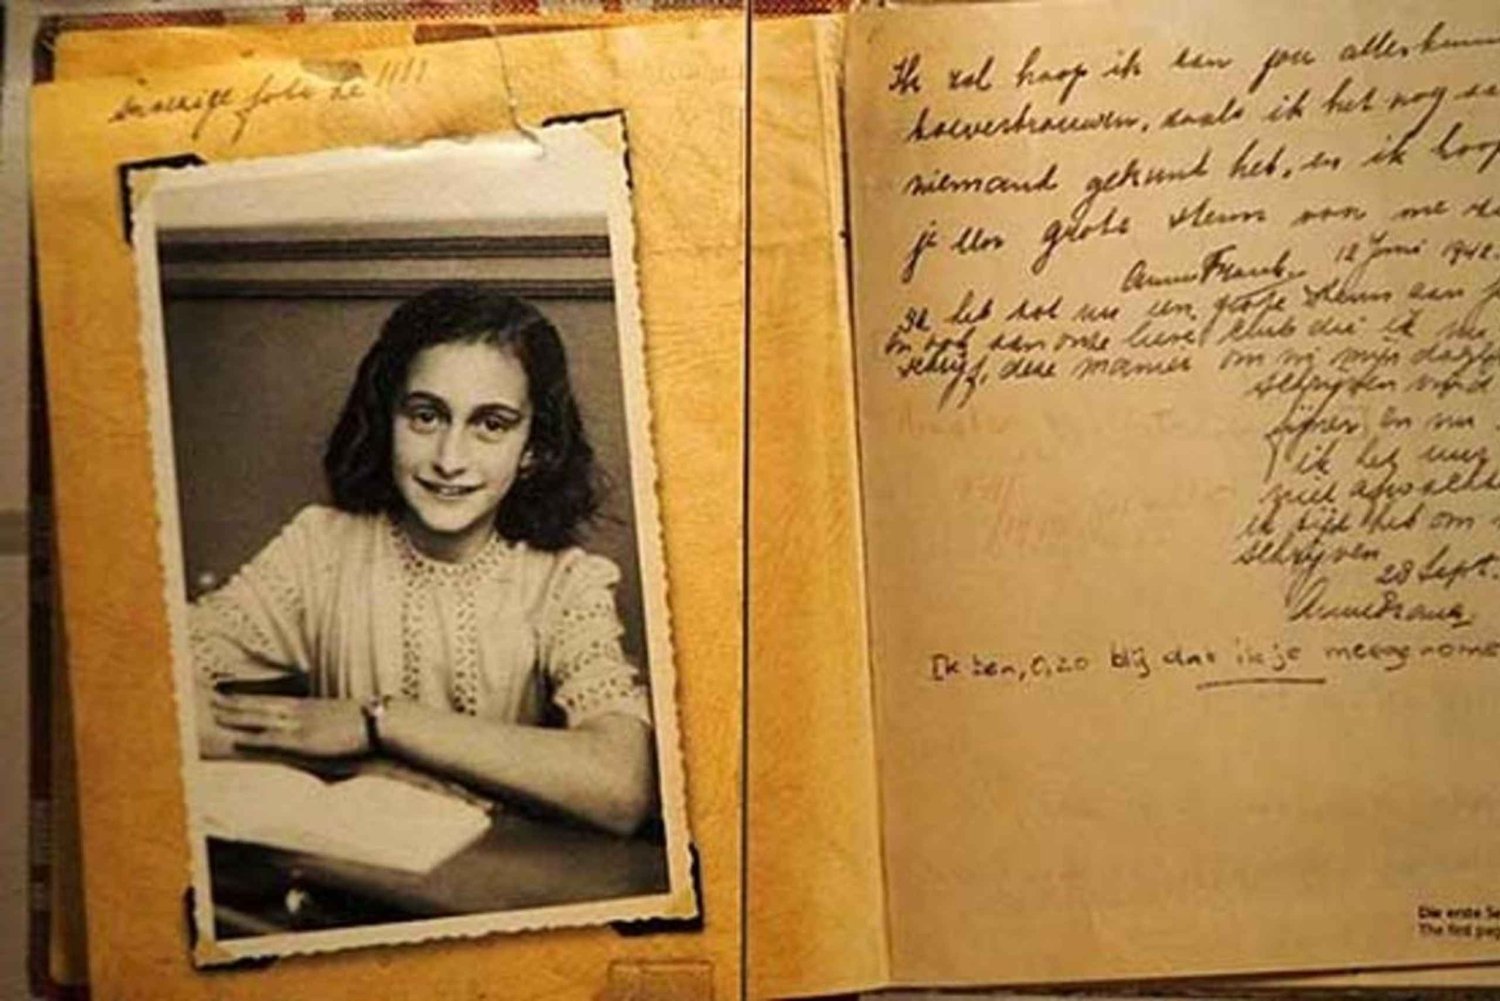 foto hè !!!!
Ik zal hoop ik aan jou alles kunn
toevertrouwen, zoals ik het nog aa
niemand gekund heb, en ik hoop
je een grote steun van me z
Anne Frank. 12 Juni 1942.
Ik heb tot nu een grote steun aan j
en ook aan onze lieve club die ik nu
schrijf, deze manier om in mijn dagb
schrijven vind
fijner en nu
ik heb uur
niet afwacht
ik tijd heb om
schrijven
28 Sept.
Anne Frank.
Ik ben, o, zo blij dat ik je meegenome
Die erste Se
The first pag